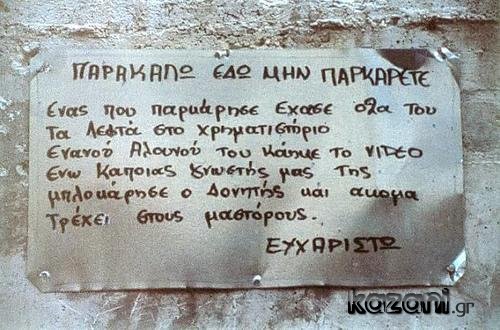 ΠΑΡΑΚΑΛΩ ΕΔΩ ΜΗΝ ΠΑΡΚΑΡΕΤΕ
Ενας που παρκάρησε εχασε ολα του
Τα Λεφτά στο χρηματιστήριο
Ενανού Αλουνού του κάηκε το VIDEO
Ενω Καποιας γνωστής μας της
μπλοκάρησε ο Δονητής και ακομα
τρέχει στους μαστόρους.
ΕΥΧΑΡΙΣΤΩ
kazani.gr